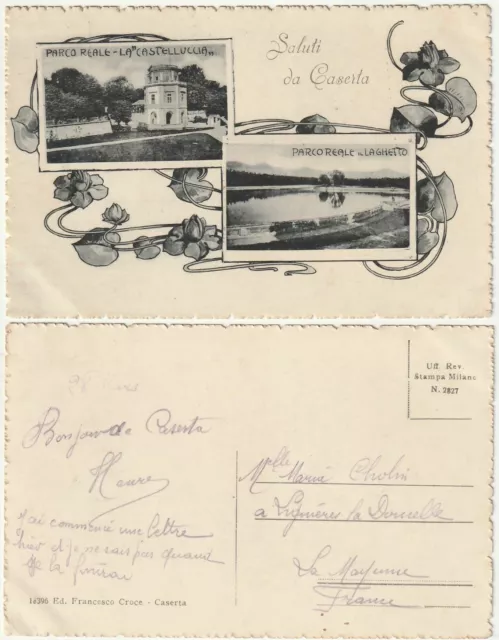 PARCO REALE - LA "CASTELLUCCIA"
Saluti
da Caserta
PARCO REALE IL LAGHETTO
Uff. Rev.
Stampa Milano
N. 2827
Bonjour de Caserta
J'ai commencé une lettre
hier et je ne sais pas quand
je la finirai
Mlle Maria
a Lignières la Doucelle
La Mayenne
France
Ed. Francesco Croce - Caserta